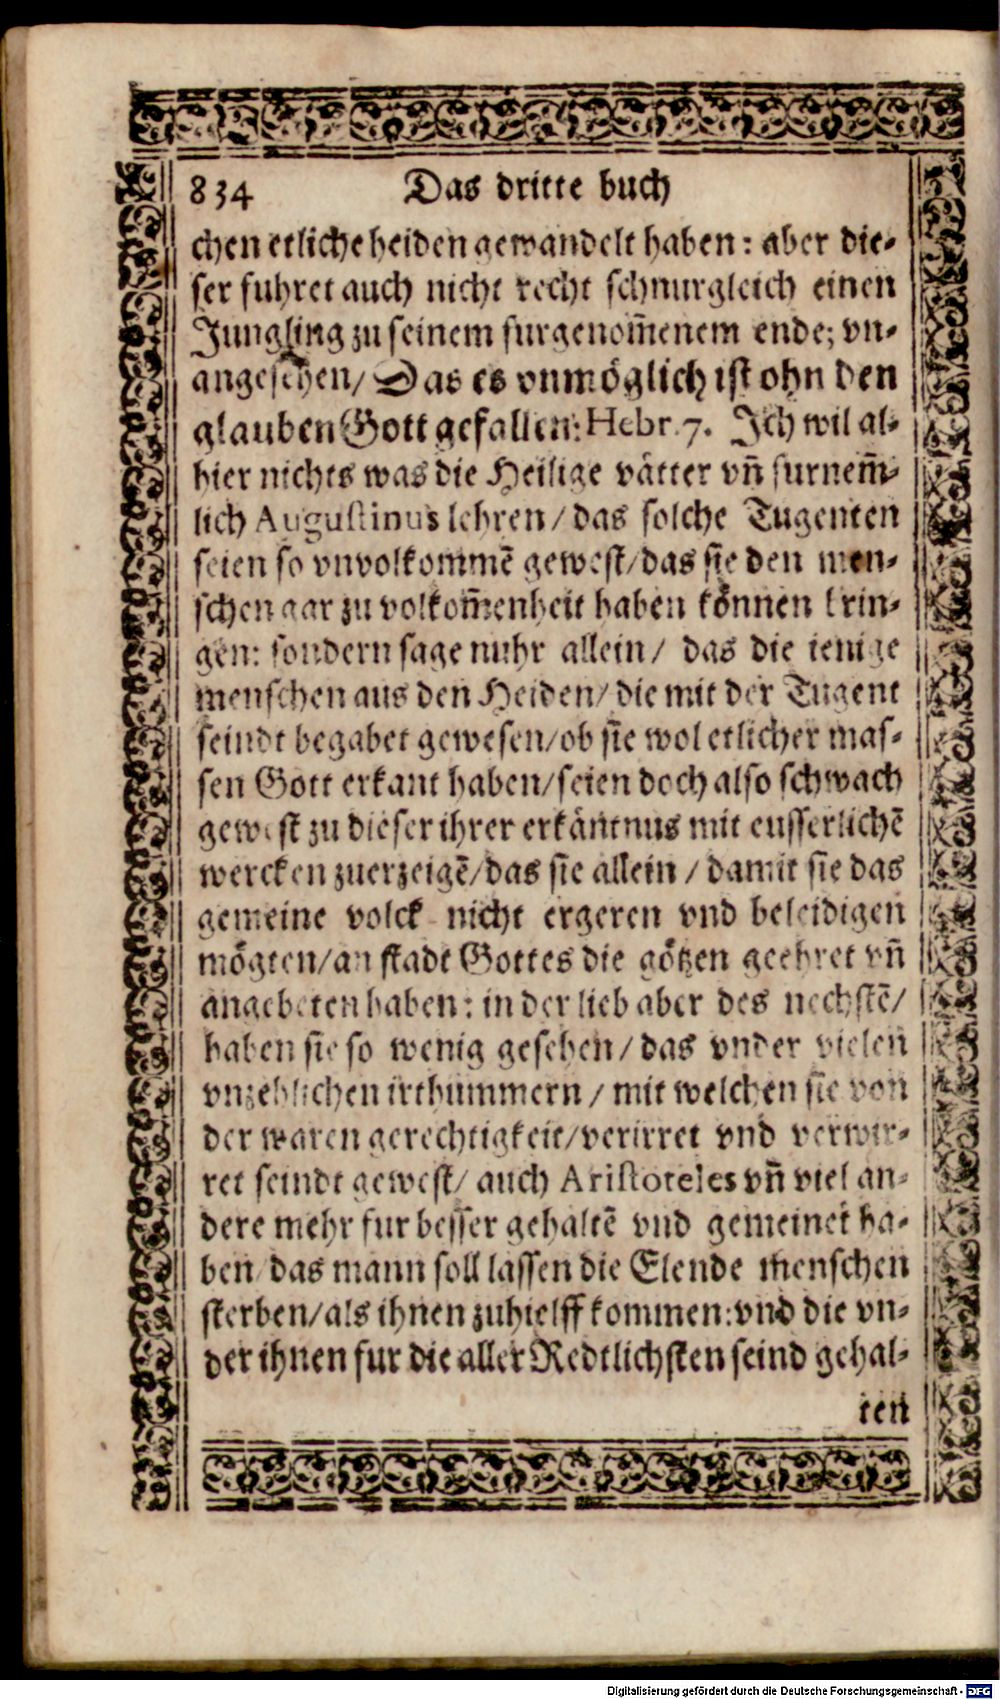 834 Das dritte buch
chen etliche heiden gewandelt haben: aber die-
ser fuhret auch nicht recht schnurgleich einen
Jungling zu seinem furgenom̃enem ende; vn-
angesehen/ Das es vnmöglich ist ohn den
glauben Gott gefallen: Hebr. 7. Ich wil al-
hier nichts was die Heilige vätter vñ furnem̃-
lich Augustinus lehren/ das solche Tugenten
seien so vnvolkommẽ gewest/ das sie den men-
schen gar zu volkom̃enheit haben können brin-
gen: sondern sage nuhr allein/ das die ienige
menschen aus den Heiden/ die mit der Tugent
seindt begabet gewesen/ ob sie wol etlicher mas-
sen Gott erkant haben/ seien doch also schwach
gewest zu dieser ihrer erkäntnus mit eusserlichẽ
wercken zuerzeigẽ/ das sie allein/ damit sie das
gemeine volck nicht ergeren vnd beleidigen
mögten/ an stadt Gottes die götzen geehret vñ
angebeten haben: in der lieb aber des nechstẽ/
haben sie so wenig gesehen/ das vnder vielen
vnzehlichen irthummern/ mit welchen sie von
der waren gerechtigkeit/ verirret vnd verwir-
ret seindt gewest/ auch Aristoteles vñ viel an-
dere mehr fur besser gehaltẽ vnd gemeinet ha-
ben das mann soll lassen die Elende menschen
sterben/ als ihnen zuhielff kommen: vnd die vn-
der ihnen fur die aller Redtlichsten seind gehal-
ten
Digitalisierung gefördert durch die Deutsche Forschungsgemeinschaft - DFG